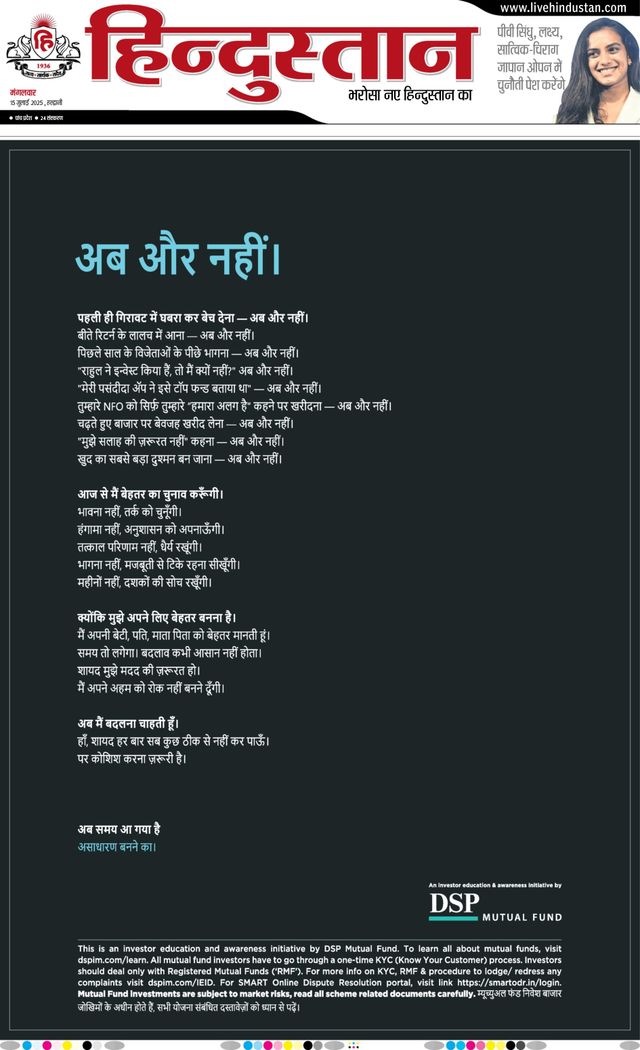 www.livehindustan.com
हिन्दुस्तान
हि
1936
मंगलवार
15 जुलाई 2025, हल्द्वानी
भरोसा नए हिन्दुस्तान का
पीवी सिंधु, लक्ष्य,
सात्विक-चिराग
जापान ओपन में
चुनौती पेश करेंगे
● पांच प्रदेश ● 24 संस्करण
अब और नहीं।
पहली ही गिरावट में घबरा कर बेच देना — अब और नहीं।
बीते रिटर्न के लालच में आना — अब और नहीं।
पिछले साल के विजेताओं के पीछे भागना — अब और नहीं।
"राहुल ने इन्वेस्ट किया हैं, तो मैं क्यों नहीं?" अब और नहीं।
"मेरी पसंदीदा ॲप ने इसे टॉप फन्ड बताया था" — अब और नहीं।
तुम्हारे NFO को सिर्फ़ तुम्हारे "हमारा अलग है" कहने पर खरीदना — अब और नहीं।
चढ़ते हुए बाजार पर बेवजह खरीद लेना — अब और नहीं।
"मुझे सलाह की ज़रूरत नहीं" कहना — अब और नहीं।
खुद का सबसे बड़ा दुश्मन बन जाना — अब और नहीं।
आज से मैं बेहतर का चुनाव करूँगी।
भावना नहीं, तर्क को चुनूँगी।
हंगामा नहीं, अनुशासन को अपनाऊँगी।
तत्काल परिणाम नहीं, धैर्य रखूंगी।
भागना नहीं, मजबूती से टिके रहना सीखूँगी।
महीनों नहीं, दशकों की सोच रखूँगी।
क्योंकि मुझे अपने लिए बेहतर बनना है।
मैं अपनी बेटी, पति, माता पिता को बेहतर मानती हूं।
समय तो लगेगा। बदलाव कभी आसान नहीं होता।
शायद मुझे मदद की ज़रूरत हो।
मैं अपने अहम को रोक नहीं बनने दूँगी।
अब मैं बदलना चाहती हूँ।
हाँ, शायद हर बार सब कुछ ठीक से नहीं कर पाऊँ।
पर कोशिश करना ज़रूरी है।
अब समय आ गया है
असाधारण बनने का।
An investor education & awareness initiative by
DSP
MUTUAL FUND
This is an investor education and awareness initiative by DSP Mutual Fund. To learn all about mutual funds, visit
dspim.com/learn. All mutual fund investors have to go through a one-time KYC (Know Your Customer) process. Investors
should deal only with Registered Mutual Funds ('RMF'). For more info on KYC, RMF & procedure to lodge/ redress any
complaints visit dspim.com/IEID. For SMART Online Dispute Resolution portal, visit link https://smartodr.in/login.
Mutual Fund Investments are subject to market risks, read all scheme related documents carefully. म्यूच्युअल फंड निवेश बाजार
जोखिमों के अधीन होते हैं, सभी योजना संबंधित दस्तावेज़ों को ध्यान से पढ़ें।